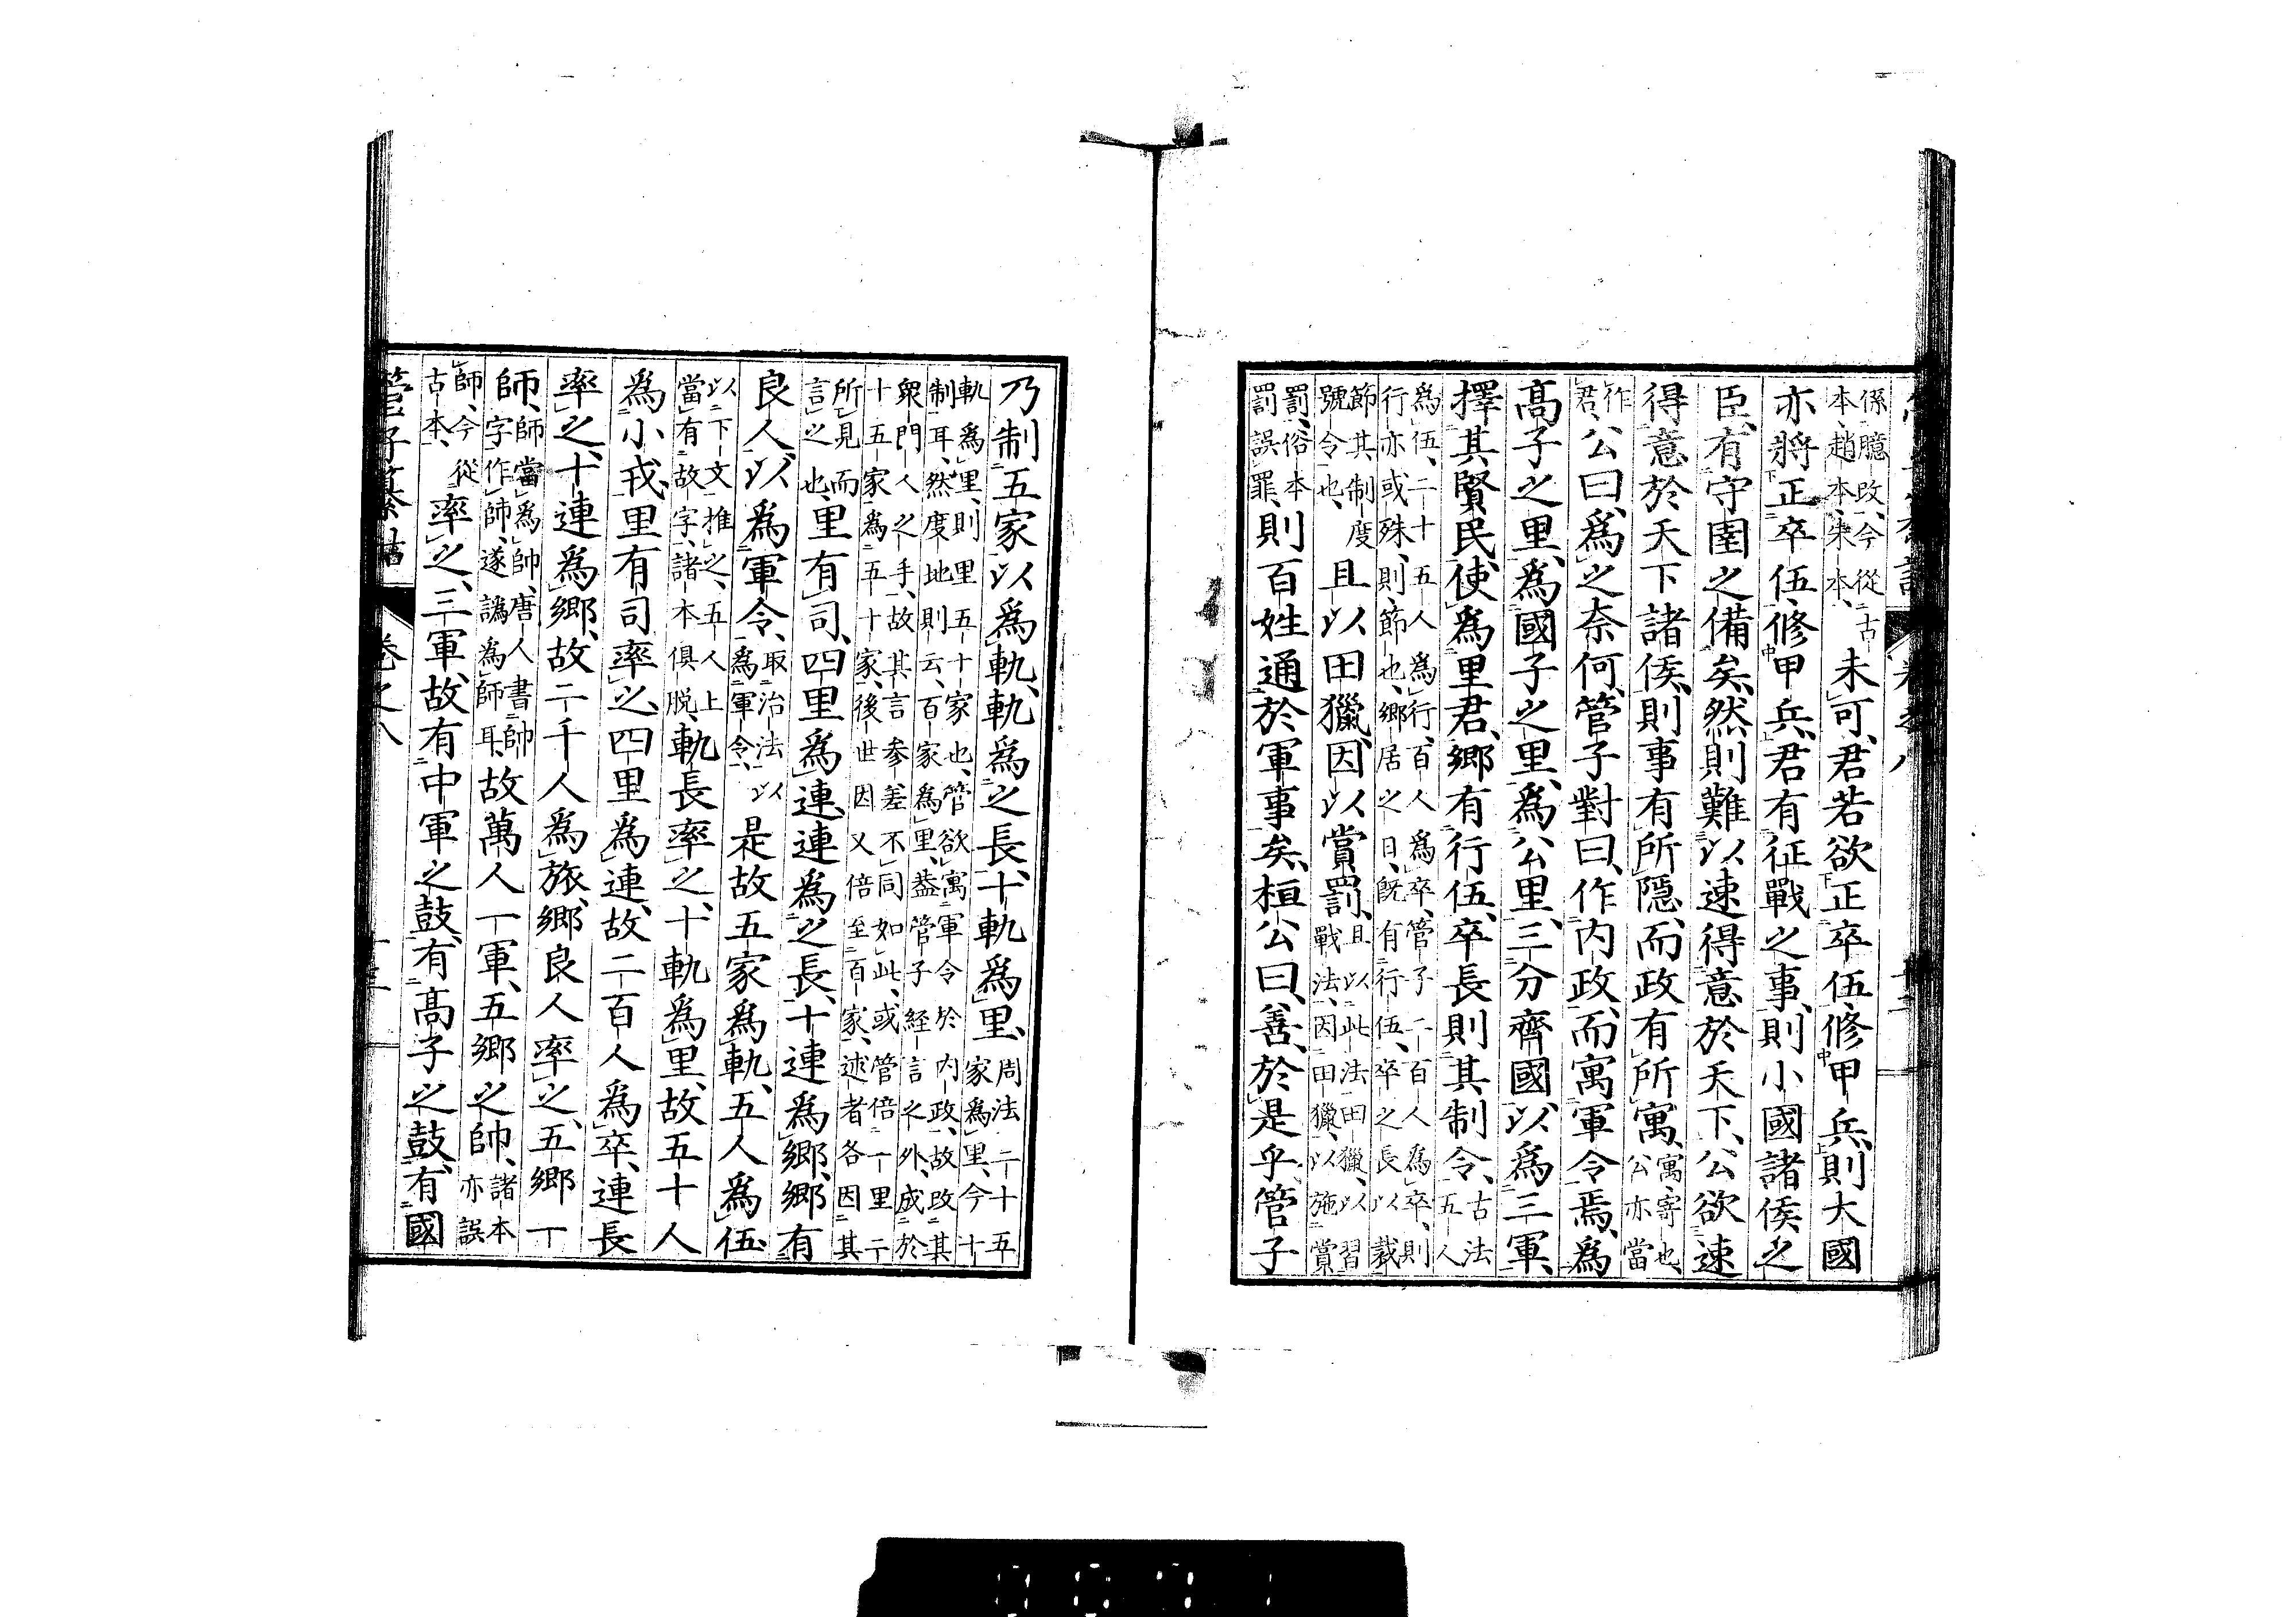 係臆改、今從古
本、趙本、朱本、
未可、君若欲正卒伍、修甲兵、則大國
亦將正卒伍、修甲兵、君有征戰之事、則小國諸侯之
臣、有守圉之備矣、然則難以速得意於天下、公欲速
得意於天下諸侯、則事有所隱、而政有所寓、
寓、寄也、
公亦當
作
君
公曰、爲之奈何、管子對曰、作内政、而寓軍令焉、爲
高子之里、爲國子之里、爲公里、三分齊國、以爲三軍、
擇其賢民、使爲里君、鄉有行伍、卒長則其制令、
古法
五人
爲伍、二十五人爲行、百人爲卒、管子二百人爲卒、則
行亦或殊、則、節也、鄉居之日、既有行伍、卒之長以裁
節其制度
號令也、
且以田獵、因以賞罰、
且以此法田獵、以習
戰法、因田獵、以施賞
罰、俗本
罰誤罪、
則百姓通於軍事矣、桓公曰、善、於是乎管子
乃制五家以爲軌、軌爲之長、十軌爲里、
周法二十五
家爲里、今十
軌爲里、則里五十家也、管欲寓軍令於内政、故改其
制耳、然度地則云、百家爲里、葢管子經言之外、成於
衆門人之手、故其言參差不同如此、或管倍一里二
十五家爲五十家、後世因又倍至百家、述者各因其
所見而
言之也、
里有司、四里爲連、連爲之長、十連爲鄉、鄉有
良人、以爲軍令、
取治法以
爲軍令、
是故五家爲軌、五人爲伍、
以下文推之、五人上
當有故字、諸本俱脱、
軌長率之、十軌爲里、故五十人
爲小戎、里有司率之、四里爲連、故二百人爲卒、連長
率之、十連爲鄉、故二千人爲旅、鄉良人率之、五鄉一
師、
師當爲帥、唐人書帥
字作師、遂譌爲師耳、
故萬人一軍、五鄉之帥、
諸本
亦誤
師、今從
古本、
率之、三軍、故有中軍之鼓、有高子之鼓、有國
管子纂詁 卷之八